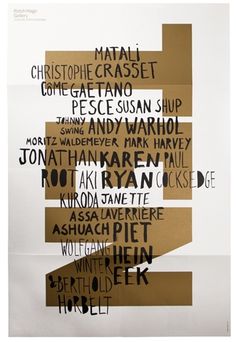 Ralph Mago
Gallery
MATALI
CHRISTOPHE CRASSET
CÔME GAETANO
PESCE SUSAN SHUP
JOHNNY SWING ANDY WARHOL
MORITZ WALDEMEYER MARK HARVEY
JONATHAN KAREN PAUL
ROOT AKI RYAN COCKSEDGE
KURODA JANETTE
ASSA LAVERRIÈRE
ASHUACH PIET
WOLFGANG HEIN
WINTER EEK
& BERTHOLD
HORBELT